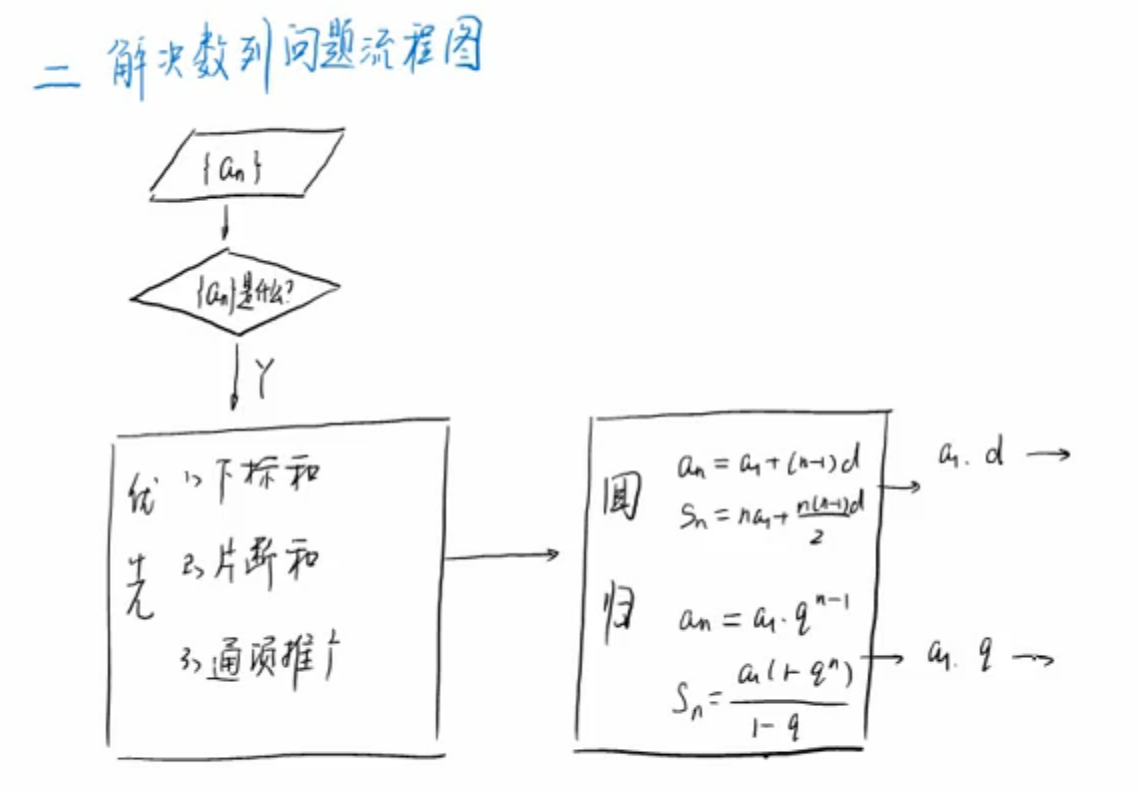 二 解决数列问题流程图
{an}
{an}是什么?
Y
优先
1> 下标和
2> 片断和
3> 通项推广
回归
an = a1 + (n-1)d
Sn = na1 + n(n-1)d/2
a1. d
an = a1 · q^(n-1)
Sn = a1(1-q^n)/(1-q)
a1. q